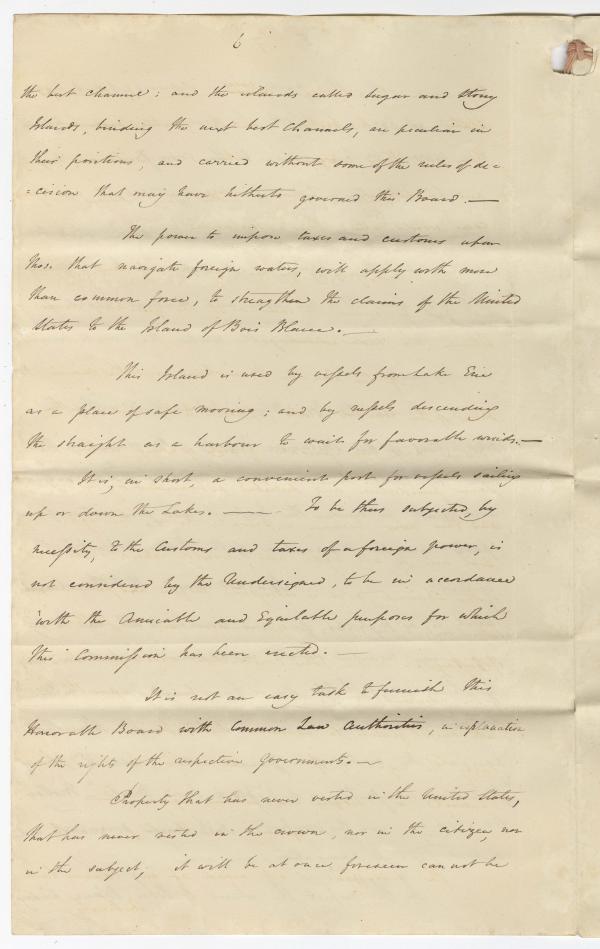 6
the best channel; and the islands called Sugar and Stony
Islands, binding the next best Channels, are peculiar in
their positions, and carried without some of the rules of de=
=cision that may have hitherto governed this Board.—
The power to impose taxes and customs upon
those that navigate foreign waters, will apply with more
than common force, to strengthen the claims of the United
States to the Island of Bois Blanc.—
This Island is used by vessels from Lake Erie
as a place of safe mooring; and by vessels descending
the straight as a harbour to wait for favorable winds.—
It is, in short, a convenient port for vessels sailing
up or down the Lakes.— To be thus subjected, by
necessity, to the Customs and taxes of a foreign power, is
not considered by the Undersigned, to be in accordance
with the Amicable and Equitable purposes for which
this Commission has been erected.—
It is not an easy task to furnish this
Honorable Board with Common Law authorities, in explanation
of the rights of the respective governments.—
Property that has never vested in the United States,
that has never vested in the crown, nor in the citizen, nor
in the subject, it will be at once foreseen cannot be